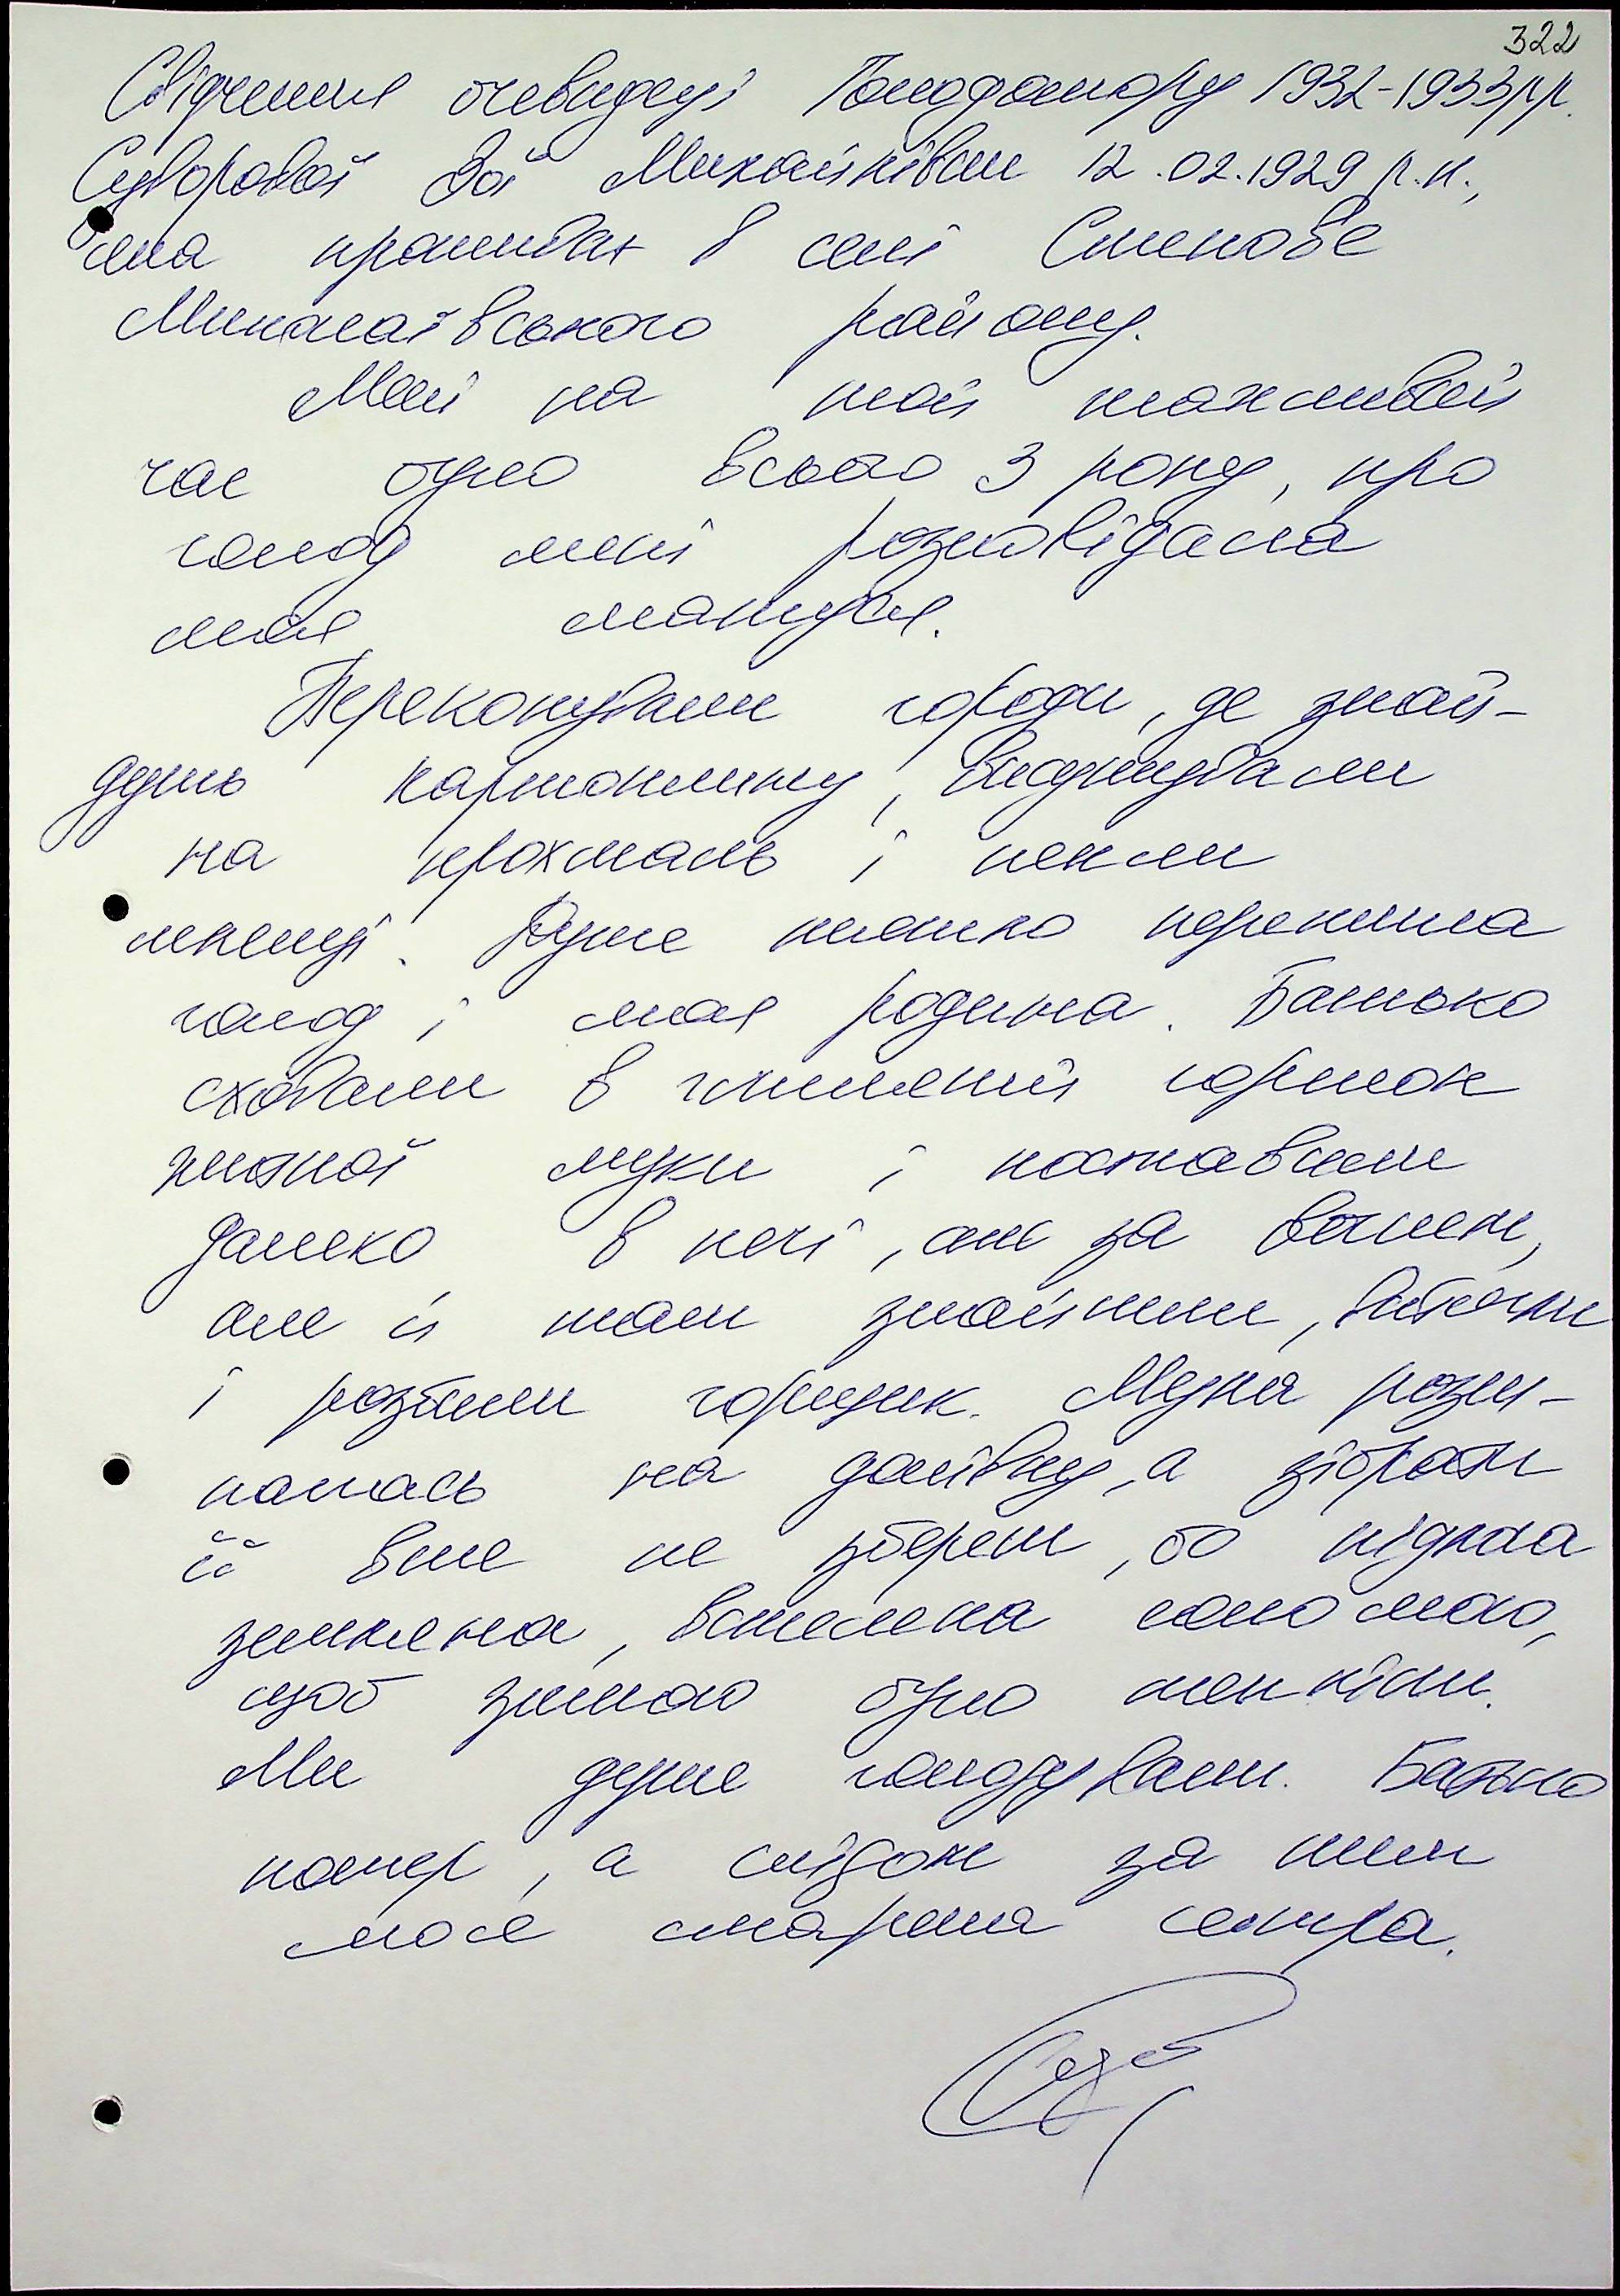 322
Свідчення очевидця Голодомору 1932-1933рр.
Суворової Зої Михайлівни 12.02.1929 р.н.,
яка проживає в селі Степове
Миколаївського району.
Мені на той важливий
час було всього 3 роки, про
голод мені розповідала
моя матуся.
Перекопували городи, де знай-
дуть картоплину,
на крохмаль і пекли
млинці. Дуже тяжко пережила
голод і моя родина. Батько
сховали в глиняний горщок
житної муки і поставили
далеко в печі, аж за вогнем,
але й там знайшли, витягли
і розбили горщик. Мука розси-
палась на долівку, а зібрати
її вже не зберем, бо підлога
земляна, встелена соломою,
щоб зимою було тепліш.
Ми дуже голодували. Батько
помер, а слідом за ним
моя старша сестра.